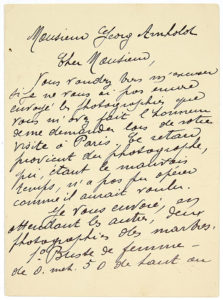 Monsieur Georg Arnholdt
Cher Monsieur,
Vous voudrez bien m'excuser
si je ne vous ai pas encore
envoyé les photographies que
vous m'avez fait l'honneur
de me demander lors de votre
visite à Paris. Le retard
provient du photographe,
qui, étant le mauvais
temps, n'a pas pu opérer
comme il aurait voulu.
Je vous envoie, en
attendant les autres, deux
photographies des marbres.
1o Buste de femme –
de 0. met. 50 de haut ou